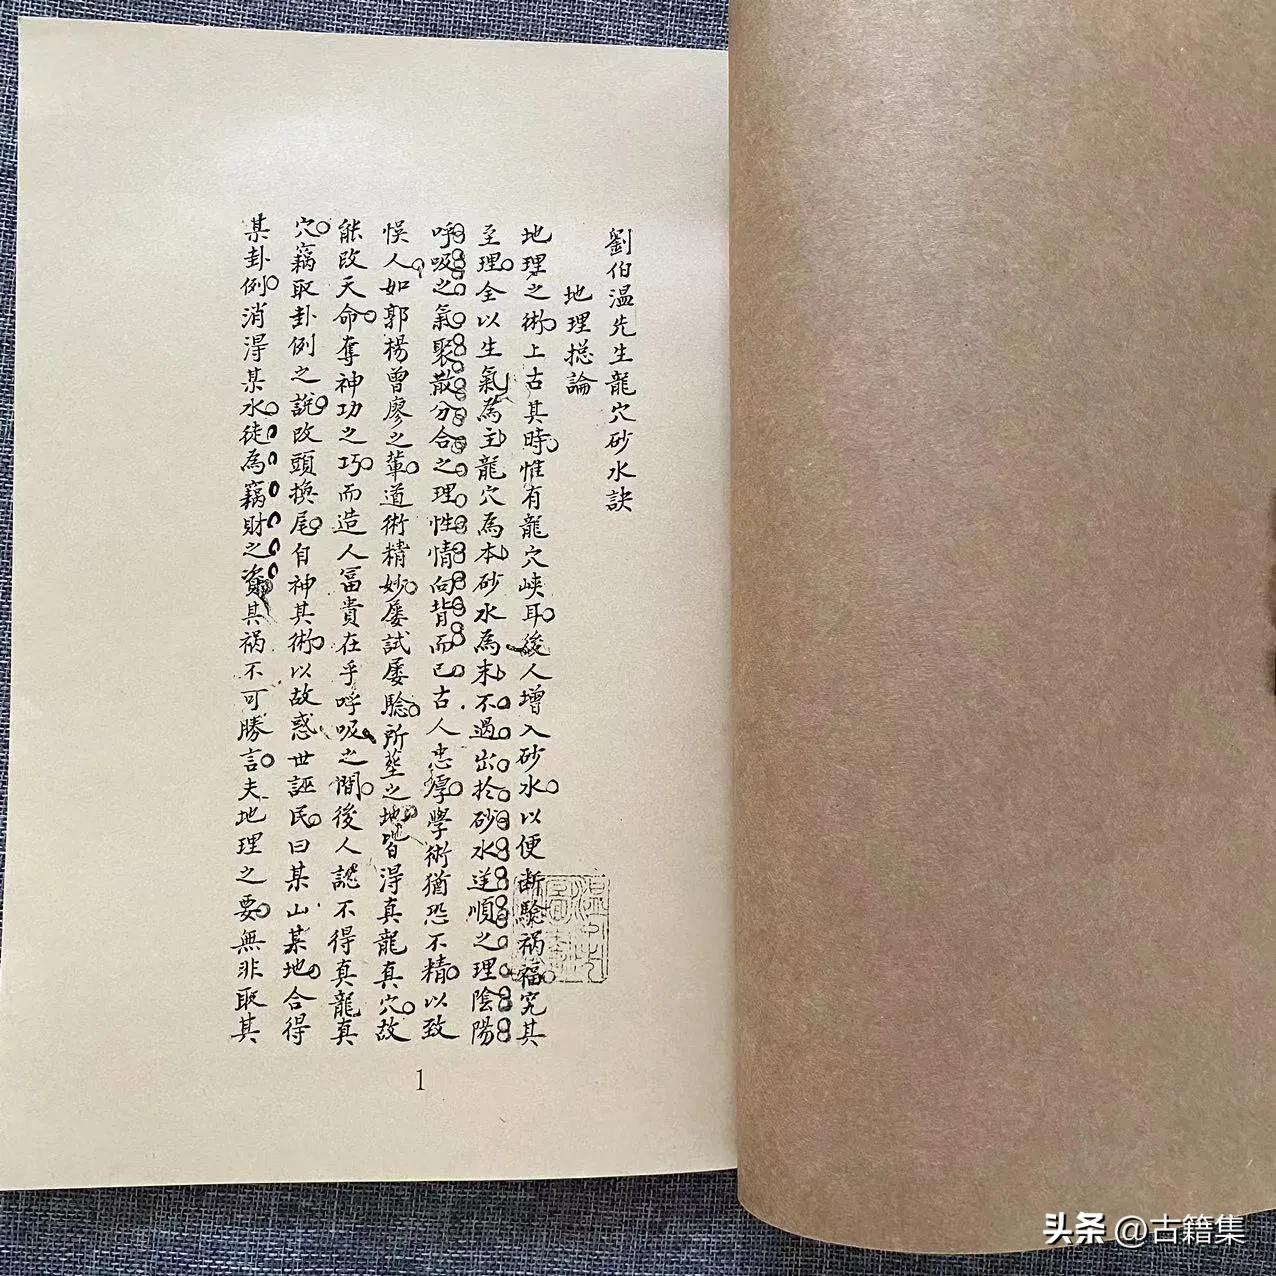 劉伯溫先生龍穴砂水訣
地理捴論
地理之術上古其時惟有龍穴峽耳後人增入砂水以便斷驗禍福究其
至理全以生氣為主龍穴為本砂水為末不過出於砂水逆順之理陰陽
呼吸之氣聚散分合之理性情向背而已古人忠厚學術猶恐不精以致
悮人如郭楊曾廖之輩道術精妙屡試屡驗所塟之地皆得真龍真穴故
能改天命奪神功之巧而造人富貴在乎呼吸之間後人認不得真龍真
穴竊取卦例之說改頭換尾自神其術以故惑世誣民曰某山某地合得
某卦例消得某水徒為竊財之資其禍不可勝言夫地理之要無非取其
1
头条 @古籍集